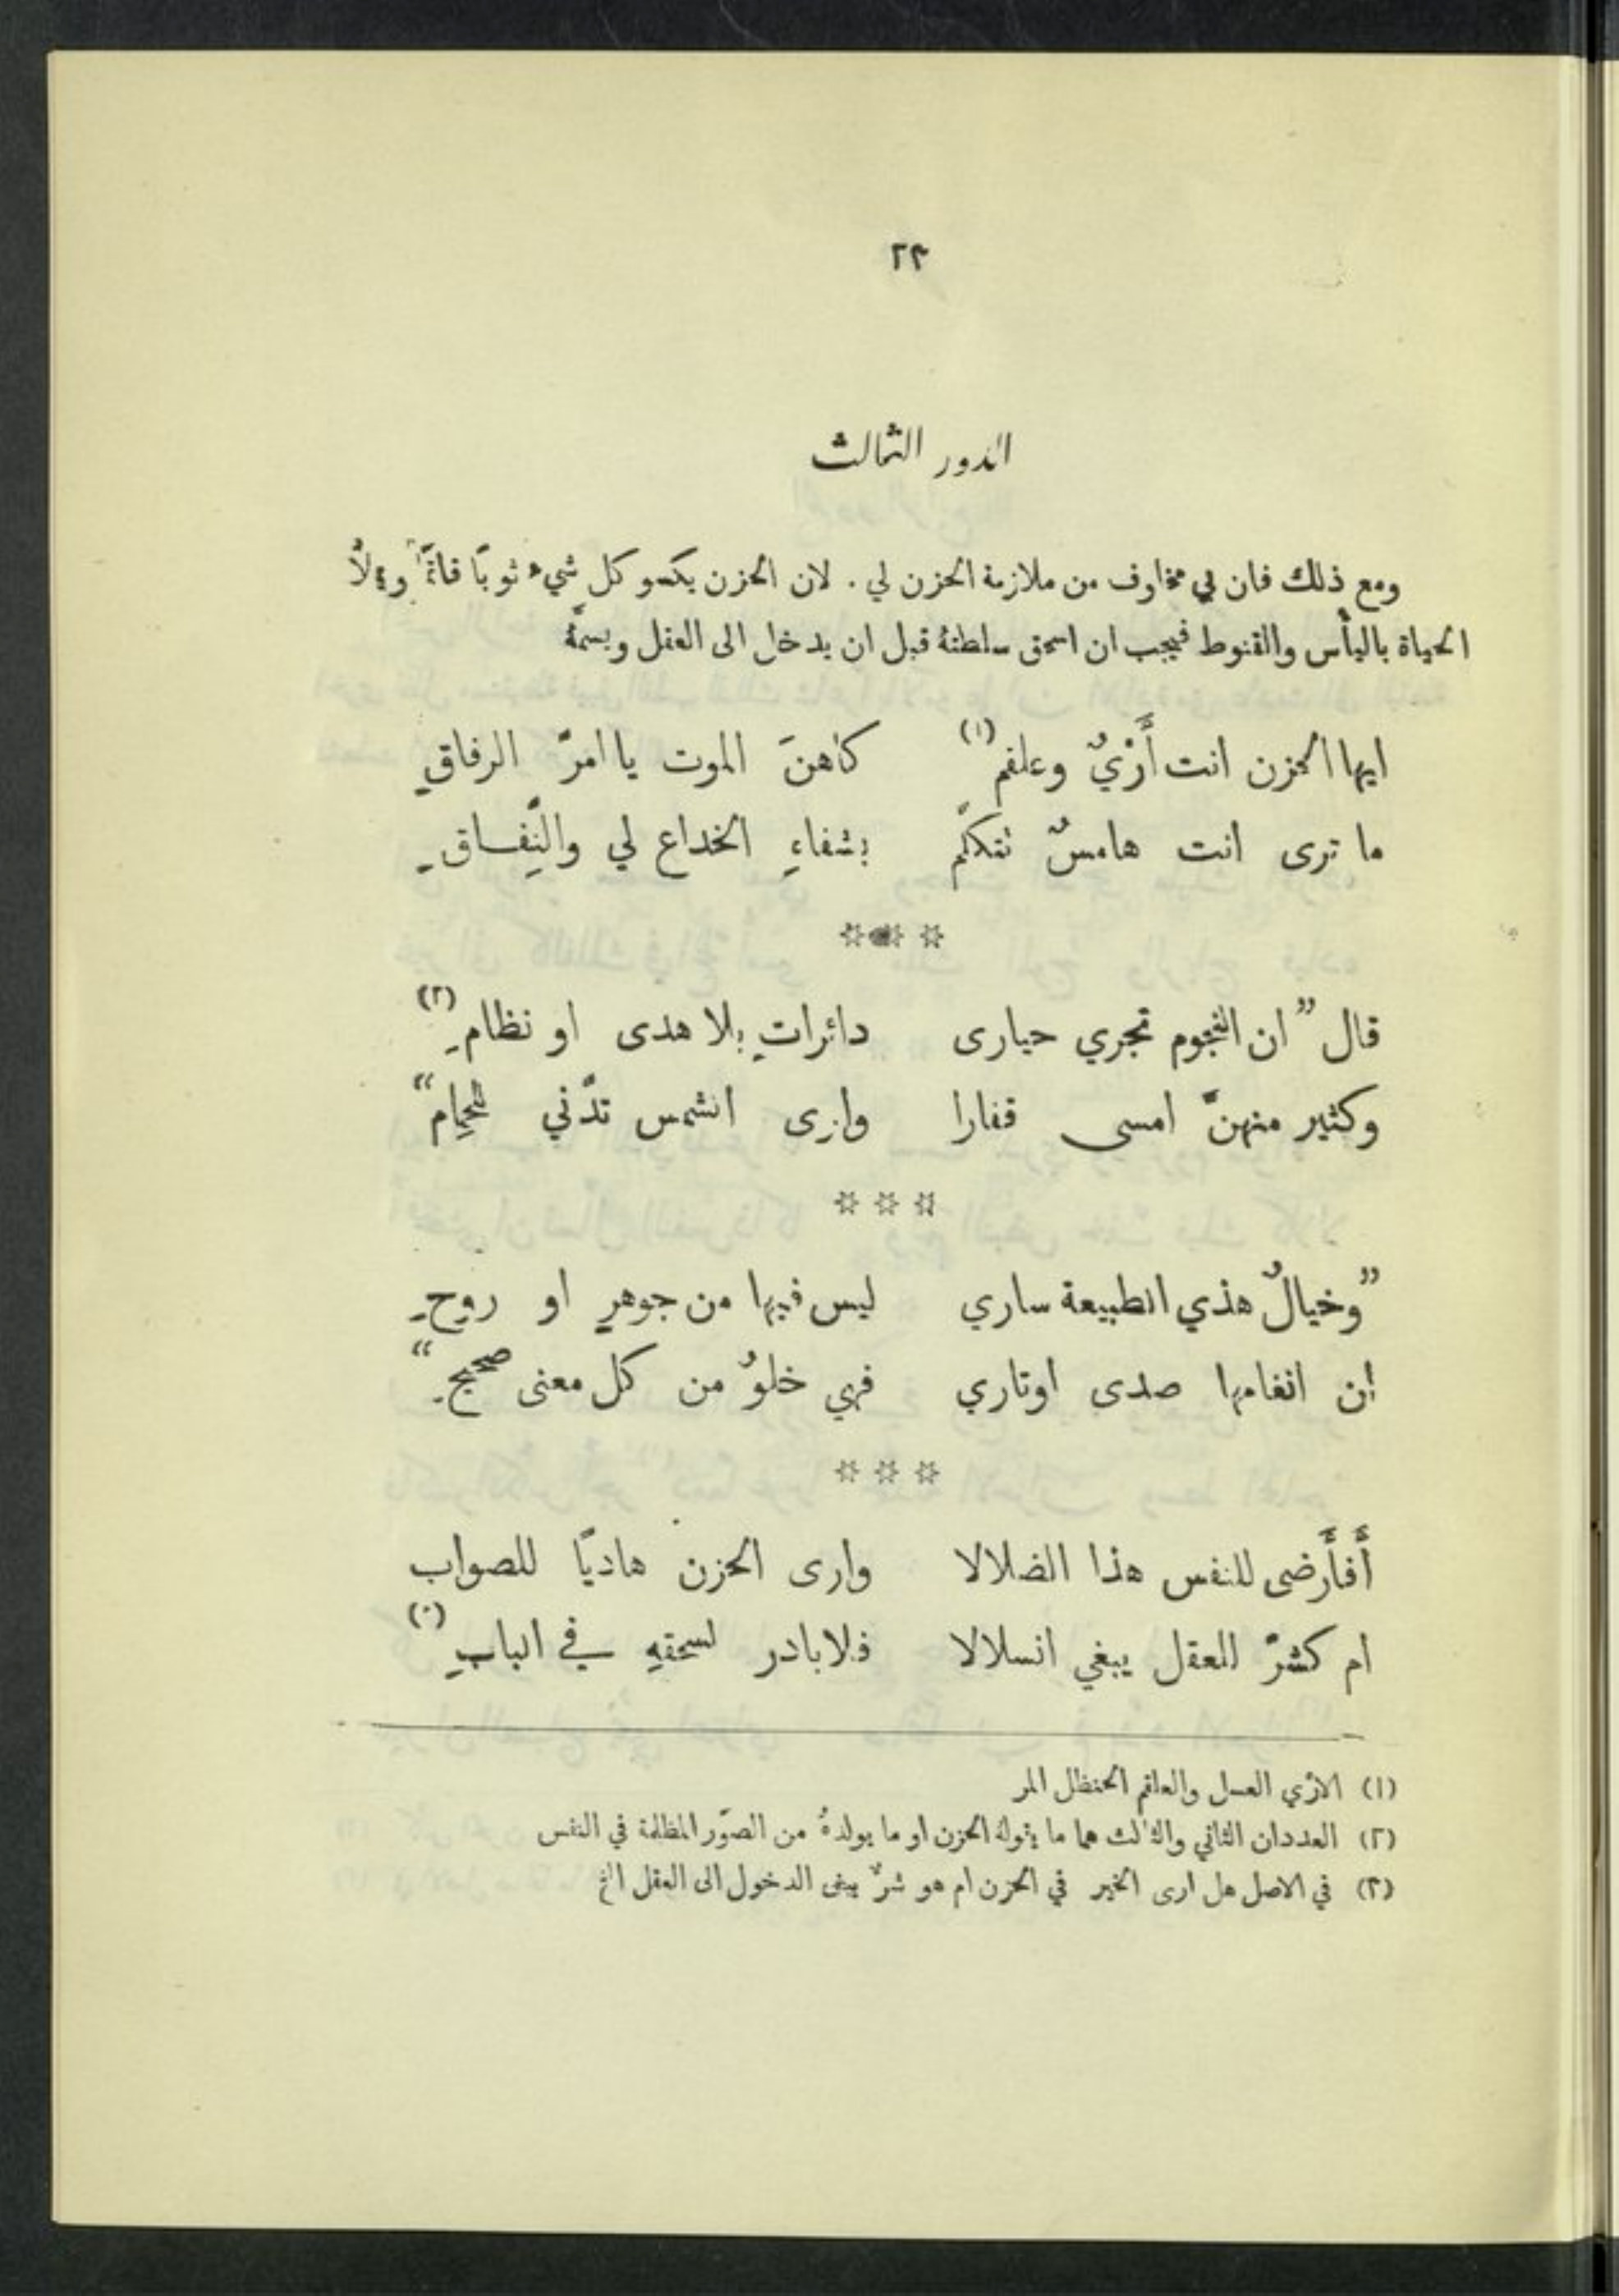 ٢٣
الدور الثالث
ومع ذلك فان لي مخاوف من ملازمة الحزن لي . لان الحزن يكسو كل شيء ثوبًا قاتمًا ويملأُ
الحياة باليأس والقنوط فيجب ان اسحق سلطتهُ قبل ان يدخل الى العقل ويسمَّهُ
ايها الحزن انت أَرْيٌ وعلقم (١) كاهنَ الموت يا امرّ الرفاقِ
ما ترى انت هامسٌ تتكلّم بشفاءِ الخداع لي والنِّفاقِ
* * *
قال "ان النجوم تجري حيارى دائراتٍ بلا هدى او نظامِ (٢)
وكثير منهنّ امسى قفارا وارى الشمس تدّني للحِمام"
* * *
"وخيالٌ هذي الطبيعة ساري ليس فيها من جوهرٍ او روحِ
ان انغامها صدى اوتاري فهي خلوٌ من كل معنى صحيحِ"
* * *
أَفأَرضى للنفس هذا الضلالا وارى الحزن هاديًا للصواب
ام كشرّ للعقل يبغي انسلالا فلابادر لسحقهِ في البابِ (٣)
(١) الاري العسل والعلقم الحنظل المر
(٢) العددان الثاني والثالث هما ما يقولهُ الحزن او ما يولدهُ من الصوَر المظلمة في النفس
(٣) في الاصل هل ارى الخير في الحزن ام هو شرٌ يبغى الدخول الى العقل الخ